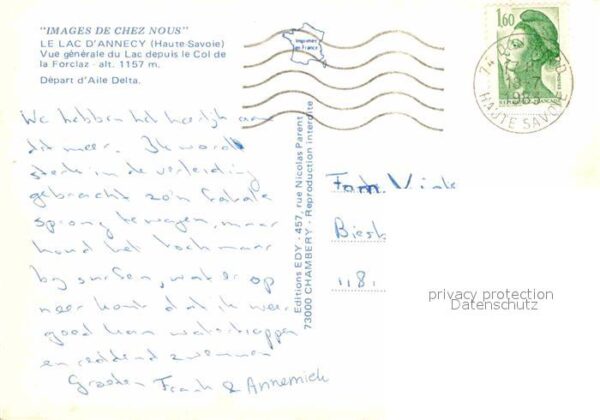 "IMAGES DE CHEZ NOUS"
LE LAC D'ANNECY (Haute-Savoie)
Vue générale du Lac depuis le Col de
la Forclaz - alt. 1157 m.
Départ d'Aile Delta.
We hebben het heerlijk aan
dit meer. Ik word
sterk in de verleiding
gebracht zo'n fatale
sprong te wagen, maar
houd het toch maar
bij surfen, wat er op
neer komt dat ik weer
good kan watertrappen
en reddend zwemmen
Groeten Frank & Annemiek
Editions EDY - 457, rue Nicolas Parent
73000 CHAMBERY - Reproduction interdite
Imprimée
en France
1,60
74
1983
HAUTE SAVOIE
Fam. Vink
Biesb
1181
privacy protection
Datenschutz